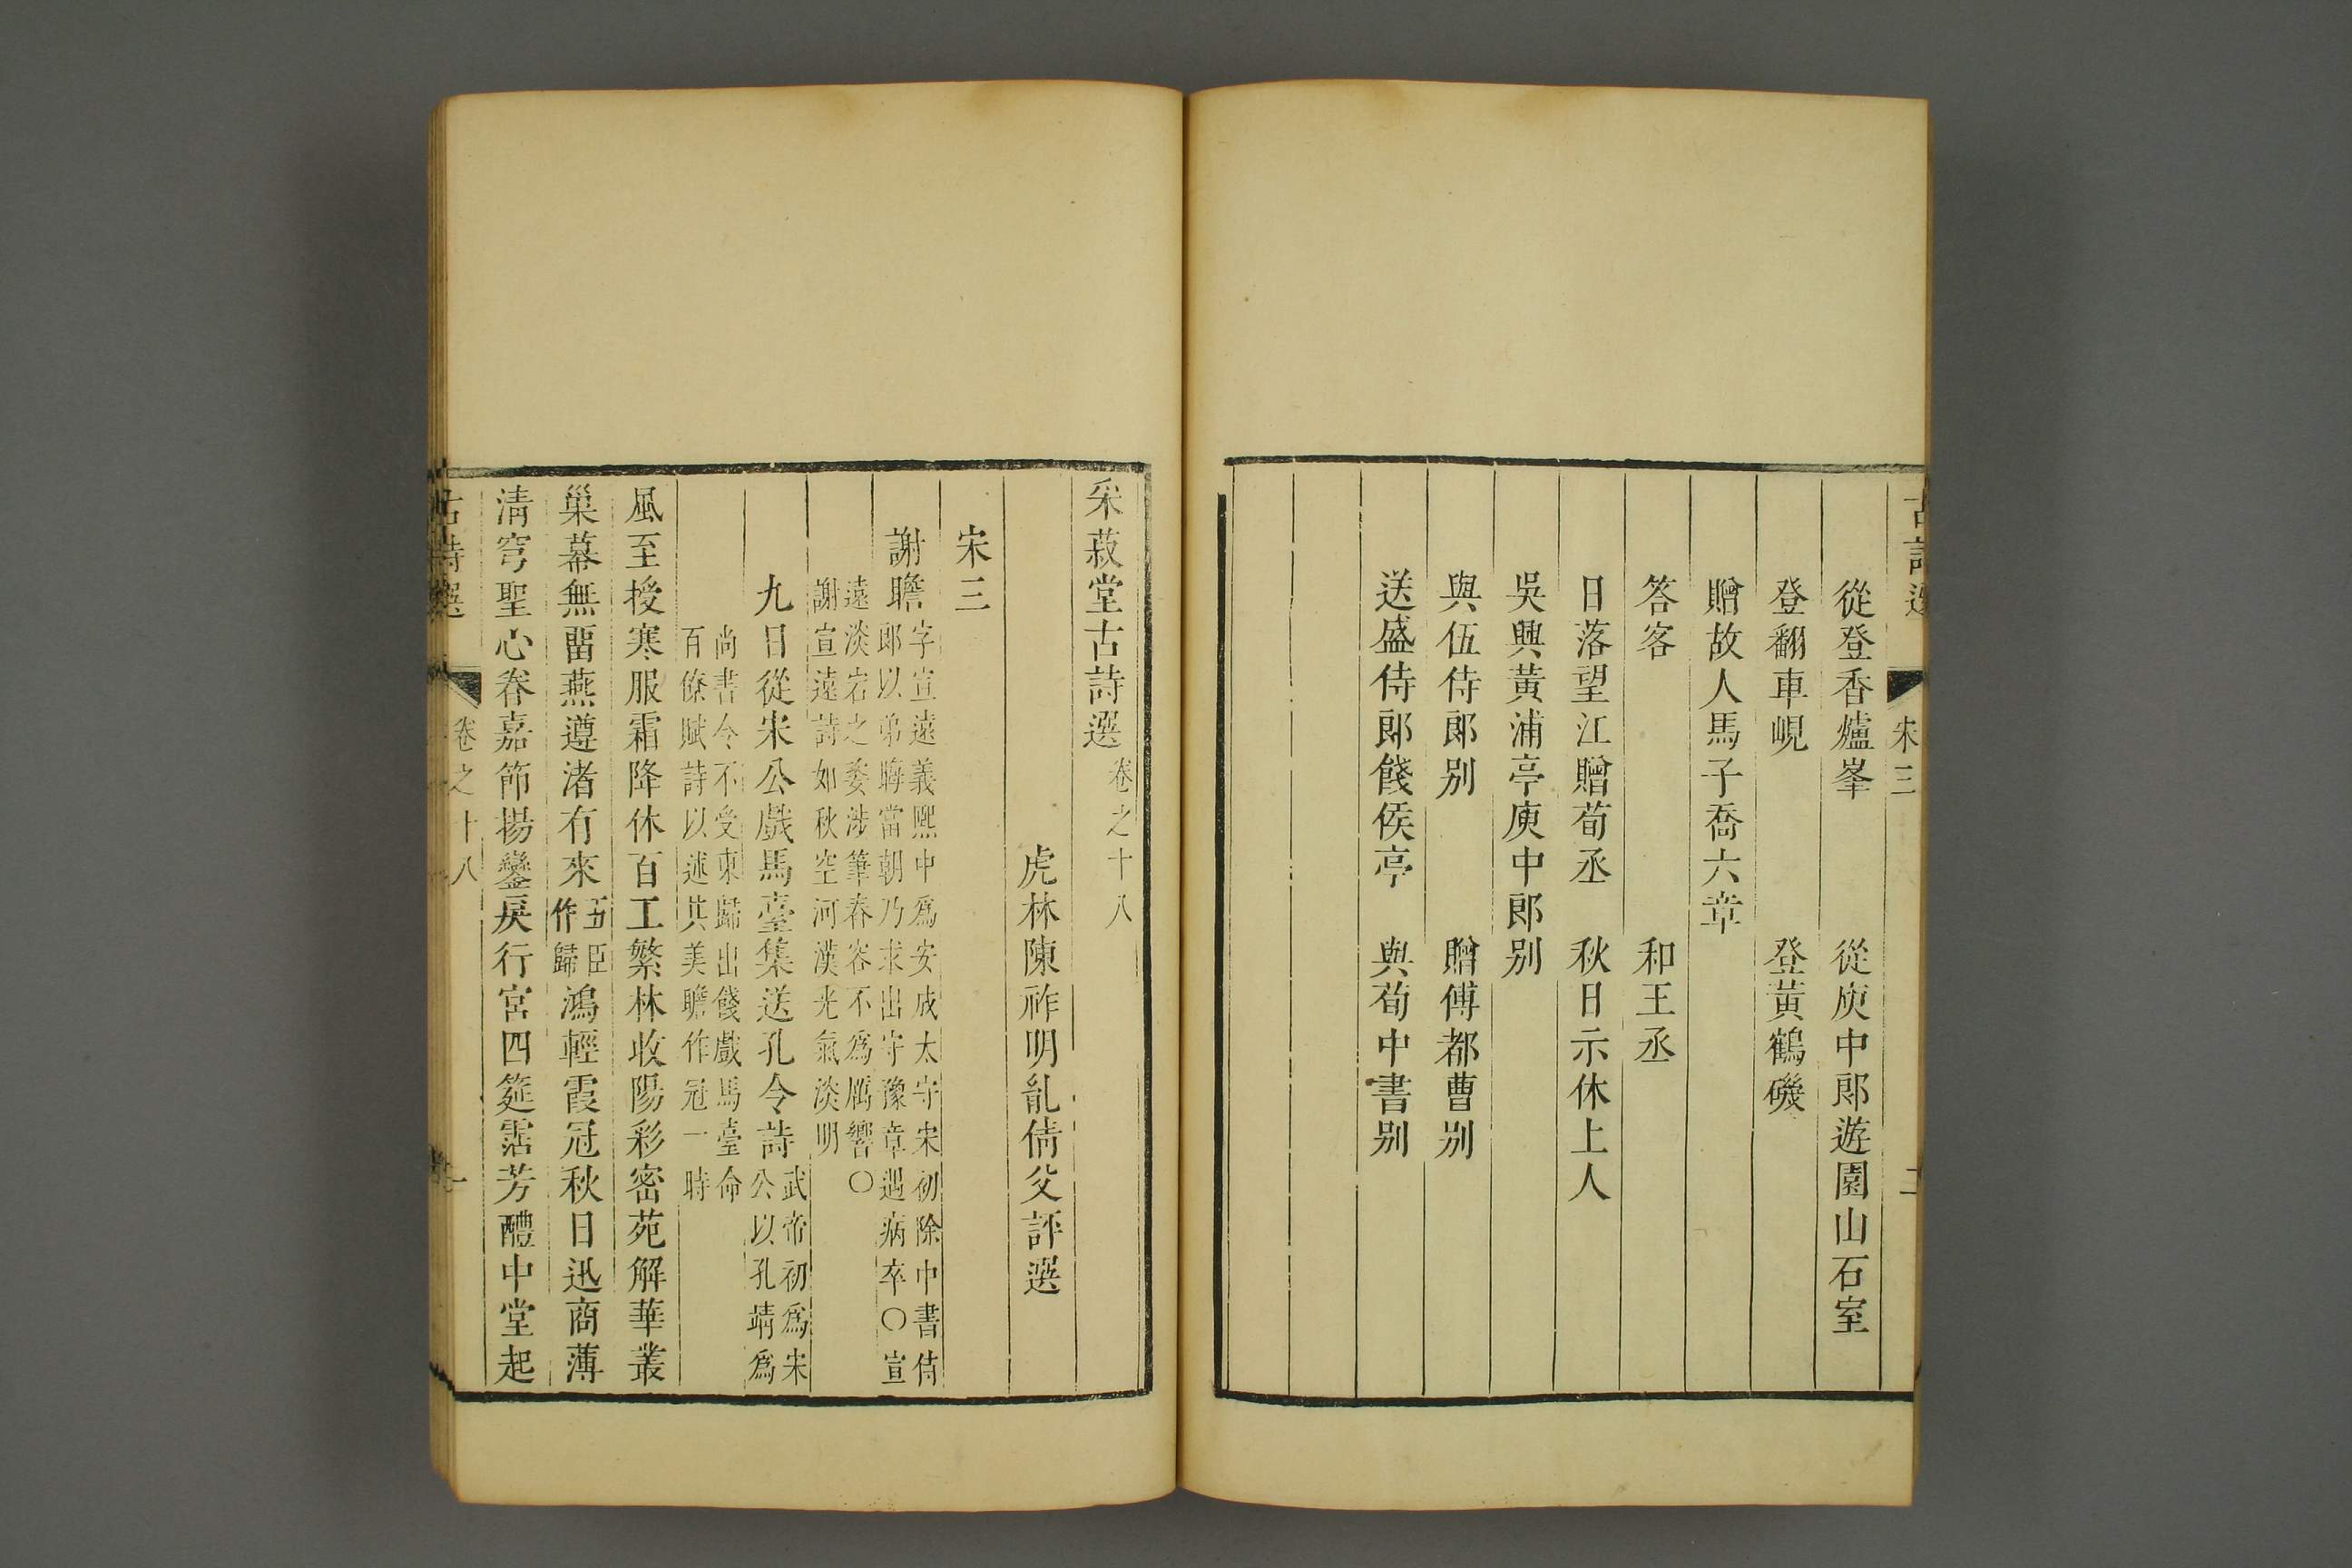 古詩選 宋三 二
從登香爐峯 從庾中郎遊園山石室
登翻車峴 登黃鶴磯
贈故人馬子喬六章
答客 和王丞
日落望江贈荀丞 秋日示休上人
吳興黃浦亭庾中郎別
與伍侍郎別 贈傅都曹別
送盛侍郎餞侯亭 與荀中書別
采菽堂古詩選 卷之十八
虎林陳祚明胤倩父評選
宋三
謝瞻 字宣遠義熙中為安成太守宋初除中書侍
郎以弟晦當朝乃求出守豫章遇病卒○宣
遠淡宕之委涉筆春容不為厲響○
謝宣遠詩如秋空河漢光氣淡明
九日從宋公戲馬臺集送孔令詩 武帝初為宋
公以孔靖為
尚書令不受東歸出餞戲馬臺命
百僚賦詩以述其美瞻作冠一時
風至授寒服霜降休百工繁林收陽彩密苑解華叢
巢幕無畱燕遵渚有來 五臣作歸 鴻輕霞冠秋日迅商薄
清穹聖心眷嘉節揚鑾戾行宮四筵霑芳醴中堂起
古詩選 卷之十八 一